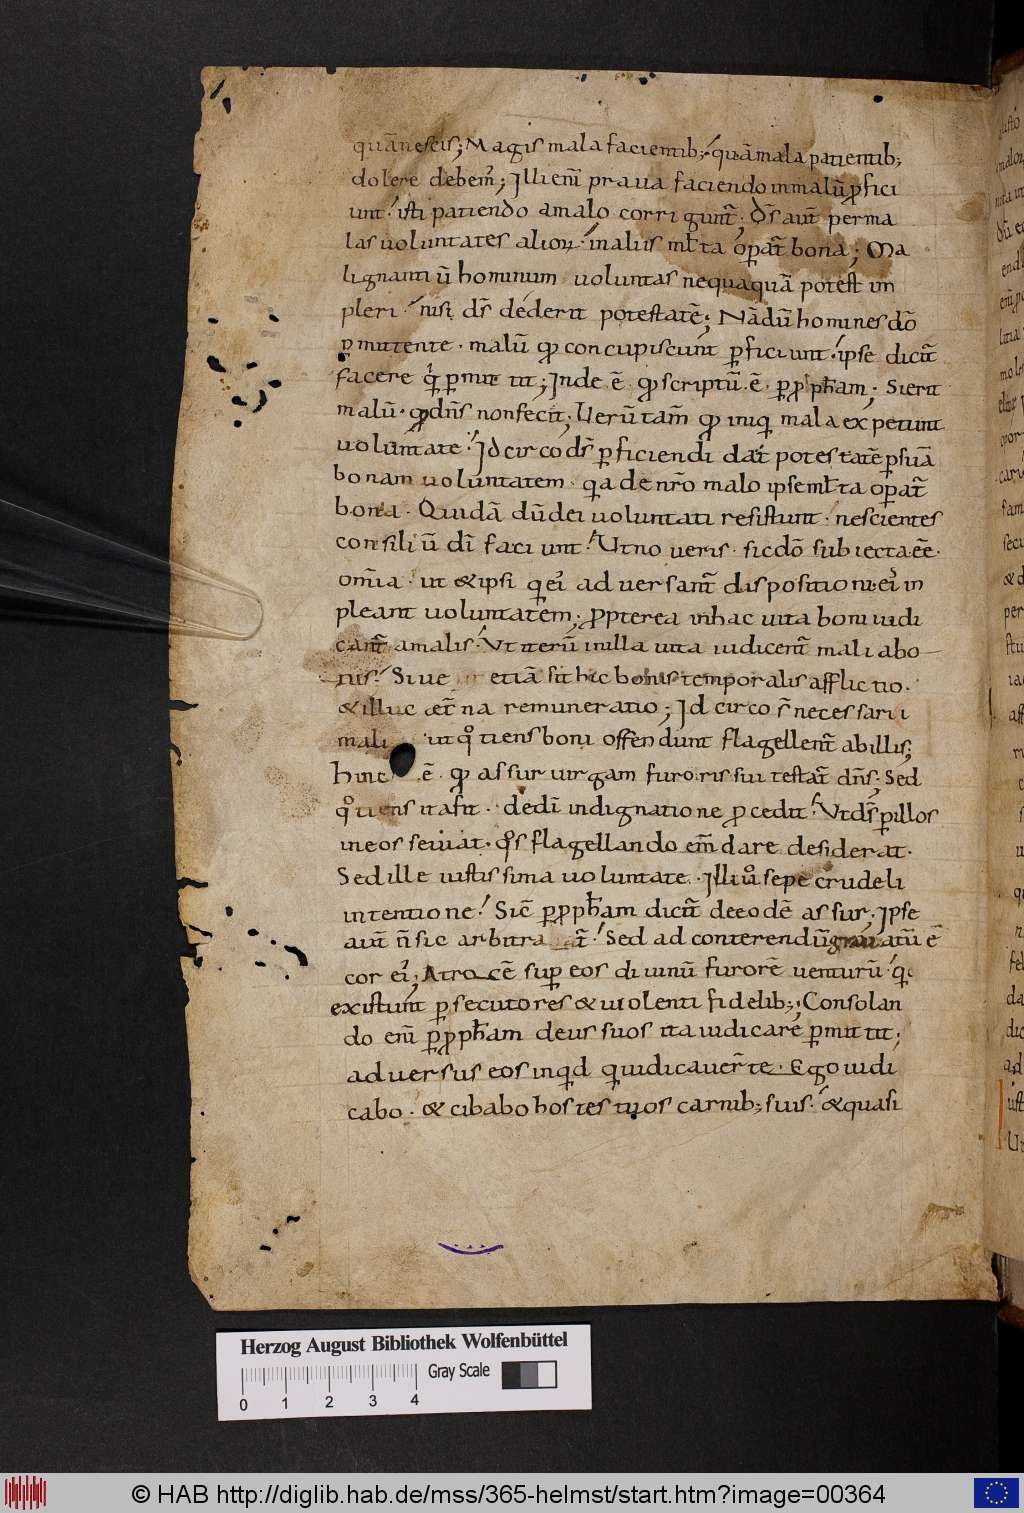 quā nescis; Magis mala facientib;, quā mala patientib;
dolere debem᷒; Illi enī praua faciendo in malū ꝑfici
unt. isti patiendo a malo corrigunt̄; Ds̄ aut̄ perma
las uoluntates alioꝝ. in aliis ml̄ta oꝑat̄ bona; Ma
lignanti ū hominum uoluntas nequaquā potest im
pleri. nisi ds̄ dederit potestatē; Nā dū homines dō
ꝑmittente. malū qđ concupiscunt ꝑficiunt. ipse dicit̄
facere q̇ ꝑmittit; Inde ē. qđ scriptū ē. ꝑ ꝓph̄am; Si erit
malū. qđ dn̄s non fecit; Uerū tam̄ qđ iniq̇ mala expetunt
uoluntate. Idcirco ds̄ ꝑficiendi dat potestatē ꝑ suā
bonam uoluntatem. qa de nr̄o malo ipse ml̄ta oꝑat̄
bona. Quidā dū dei uoluntati resistunt. nescientes
consiliū dī faciunt. Ut noueris. sic dō subiecta eē.
om̄ia. ut & ipsi q ei᷒ aduersant̄ dispositioni. ei᷒ im
pleant uoluntatem; ꝓpterea in hac uita boni iudi
cant̄ a malis. Ut iterū in illa uita iudicent̄ mali a bo
nis. Siue etiā sit hic bonis temporalis afflictio.
& illuc æt̄na remuneratio; Idcirco s̄ necessarii
mali ut qͦtiens boni offendunt flagellent̄ ab illis;
Hinc ē. qđ assur uirgam furoris sui testat̄ dn̄s; Sed
qͦtiens ita fit. de dī indignatione ꝓcedit. Ut ds̄ ꝑ illos
in eos seuiat. qͦs flagellando em̄dare desiderat.
Sed ille iustissima uoluntate. Illi uͦ sepe crudeli
intentione. Sic̄ ꝑ ꝓph̄am dicit̄ de eodē assur; Ipse
aut̄ n̄ sic arbitra at̄. Sed ad conterendū atū ē
cor ei᷒; Atrocē suꝑ eos diuinū furorē uenturū. q
existunt ꝑsecutores & uiolenti fidelib;; Consolan
do enī ꝑ ꝓph̄am deus suos ita iudicare ꝑmittit;
aduersus eos inqđ qui iudicauer̄ te. Ego iudi
cabo. & cibabo hostes tuos carnib; suis. & quasi
Herzog August Bibliothek Wolfenbüttel
Gray Scale
0 1 2 3 4
© HAB http://diglib.hab.de/mss/365-helmst/start.htm?image=00364